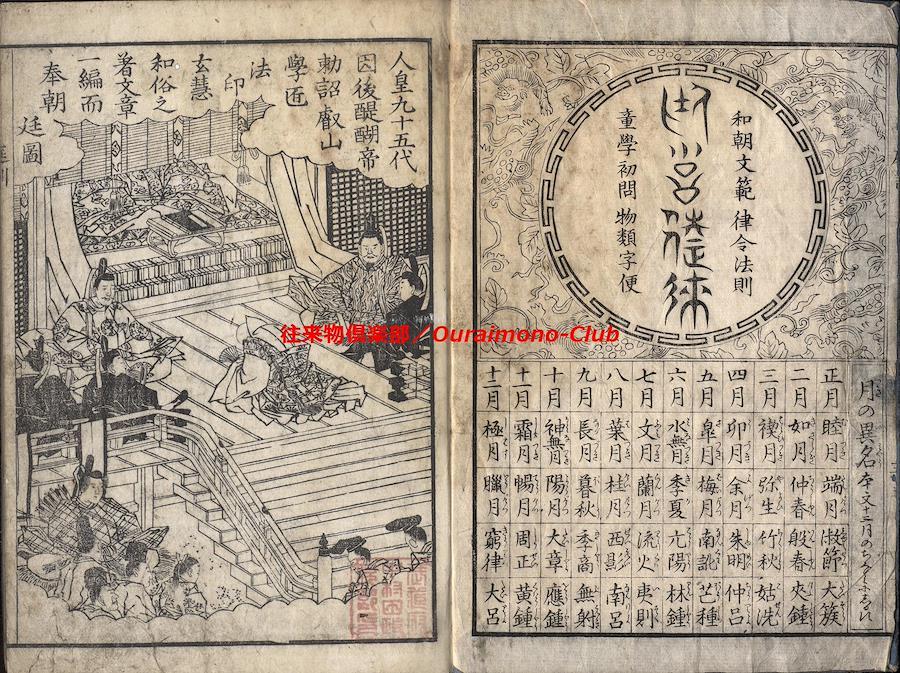 和朝文範 律令法則
庭訓徃來
童學初問 物類字便
月の異名
正月 睦月 端月 淑節 大簇
二月 如月 仲春 殷春 夾鍾
三月 禊月 弥生 竹秋 姑洗
四月 卯月 余月 朱明 仲呂
五月 皐月 梅月 南訛 芒種
六月 水無月 季夏 亢陽 林鍾
七月 文月 蘭月 流火 夷則
八月 葉月 桂月 西顥 南呂
九月 長月 暮秋 季商 無射
十月 神無月 陽月 大章 應鍾
十一月 霜月 暢月 周正 黄鍾
十二月 極月 臘月 窮律 大呂
人皇九十五代
因後醍醐帝
勅詔叡山
學匠
法印
玄慧
和俗之
著文章
一編而
奉朝
廷圖
往来物倶楽部／Ouraimono-Club